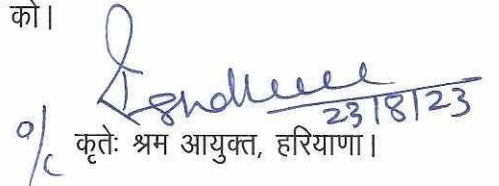 को।
23/8/23
o/c कृतेः श्रम आयुक्त, हरियाणा।